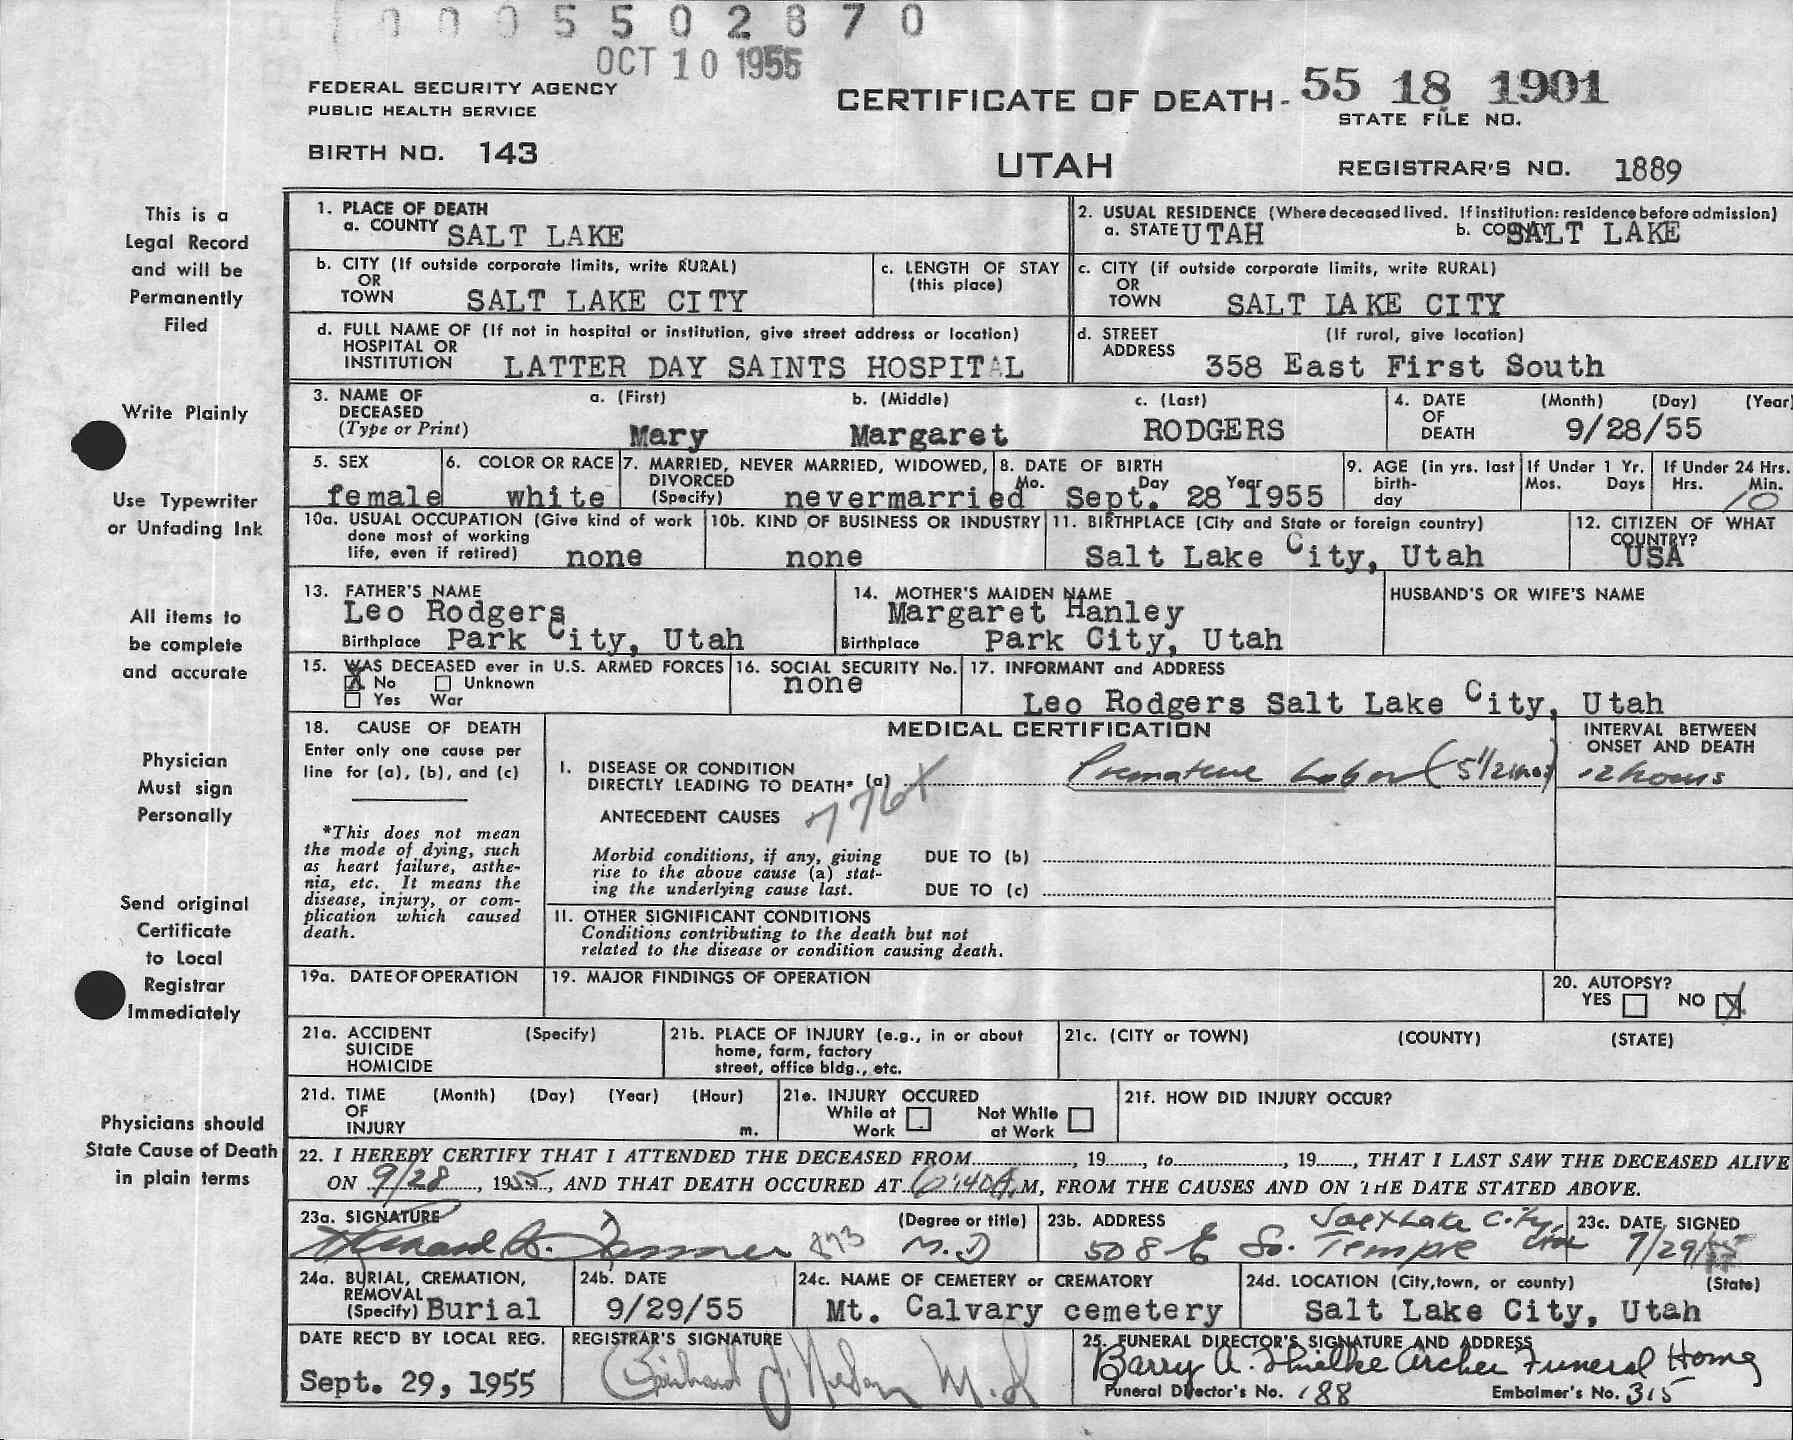 0005502870
OCT 10 1955
FEDERAL SECURITY AGENCY
PUBLIC HEALTH SERVICE
CERTIFICATE OF DEATH - 55 18 1901
STATE FILE NO.
BIRTH NO. 143
UTAH
REGISTRAR'S NO. 1889
This is a
Legal Record
and will be
Permanently
Filed
Write Plainly
Use Typewriter
or Unfading Ink
All items to
be complete
and accurate
Physician
Must sign
Personally
Send original
Certificate
to Local
Registrar
Immediately
Physicians should
State Cause of Death
in plain terms
1. PLACE OF DEATH
a. COUNTY SALT LAKE
2. USUAL RESIDENCE (Where deceased lived. If institution: residence before admission)
a. STATE UTAH b. COUNTY SALT LAKE
b. CITY (If outside corporate limits, write RURAL)
OR
TOWN SALT LAKE CITY
c. LENGTH OF STAY
(this place)
c. CITY (if outside corporate limits, write RURAL)
OR
TOWN SALT LAKE CITY
d. FULL NAME OF (If not in hospital or institution, give street address or location)
HOSPITAL OR
INSTITUTION LATTER DAY SAINTS HOSPITAL
d. STREET (If rural, give location)
ADDRESS 358 East First South
3. NAME OF DECEASED (Type or Print)
a. (First) b. (Middle) c. (Last)
Mary Margaret RODGERS
4. DATE OF DEATH (Month) (Day) (Year)
9/28/55
5. SEX
female
6. COLOR OR RACE
white
7. MARRIED, NEVER MARRIED, WIDOWED, DIVORCED (Specify)
nevermarried
8. DATE OF BIRTH
Mo. Day Year
Sept. 28 1955
9. AGE (in yrs. last birth-day
If Under 1 Yr.
Mos. Days
If Under 24 Hrs.
Hrs. Min.
10
10a. USUAL OCCUPATION (Give kind of work
done most of working
life, even if retired) none
10b. KIND OF BUSINESS OR INDUSTRY
none
11. BIRTHPLACE (City and State or foreign country)
Salt Lake City, Utah
12. CITIZEN OF WHAT
COUNTRY?
USA
13. FATHER'S NAME
Leo Rodgers
Birthplace Park City, Utah
14. MOTHER'S MAIDEN NAME
Margaret Hanley
Birthplace Park City, Utah
HUSBAND'S OR WIFE'S NAME
15. WAS DECEASED ever in U.S. ARMED FORCES
X No Unknown
Yes War
16. SOCIAL SECURITY No.
none
17. INFORMANT and ADDRESS
Leo Rodgers Salt Lake City, Utah
18. CAUSE OF DEATH
Enter only one cause per
line for (a), (b), and (c)
*This does not mean
the mode of dying, such
as heart failure, asthe-
nia, etc. It means the
disease, injury, or com-
plication which caused
death.
MEDICAL CERTIFICATION
INTERVAL BETWEEN
ONSET AND DEATH
I. DISEASE OR CONDITION
DIRECTLY LEADING TO DEATH* (a) Premature Labor (5 1/2 mo) 12 hours
776X
ANTECEDENT CAUSES
Morbid conditions, if any, giving
rise to the above cause (a) stat-
ing the underlying cause last.
DUE TO (b)
DUE TO (c)
II. OTHER SIGNIFICANT CONDITIONS
Conditions contributing to the death but not
related to the disease or condition causing death.
19a. DATE OF OPERATION
19. MAJOR FINDINGS OF OPERATION
20. AUTOPSY?
YES NO X
21a. ACCIDENT (Specify)
SUICIDE
HOMICIDE
21b. PLACE OF INJURY (e.g., in or about
home, farm, factory
street, office bldg., etc.
21c. (CITY or TOWN) (COUNTY) (STATE)
21d. TIME (Month) (Day) (Year) (Hour)
OF
INJURY m.
21e. INJURY OCCURED
While at Work Not While at Work
21f. HOW DID INJURY OCCUR?
22. I HEREBY CERTIFY THAT I ATTENDED THE DECEASED FROM ........, 19......, to ........, 19......, THAT I LAST SAW THE DECEASED ALIVE
ON 9/28, 1955, AND THAT DEATH OCCURED AT 6:40 A.M, FROM THE CAUSES AND ON THE DATE STATED ABOVE.
23a. SIGNATURE (Degree or title)
873 M.D
23b. ADDRESS
508 E So. Temple Salt Lake City,
23c. DATE SIGNED
9/29/55
24a. BURIAL, CREMATION,
REMOVAL
(Specify) Burial
24b. DATE
9/29/55
24c. NAME OF CEMETERY or CREMATORY
Mt. Calvary cemetery
24d. LOCATION (City, town, or county) (State)
Salt Lake City, Utah
DATE REC'D BY LOCAL REG.
Sept. 29, 1955
REGISTRAR'S SIGNATURE
25. FUNERAL DIRECTOR'S SIGNATURE AND ADDRESS
Barry A. Thielke Archer Funeral Home
Funeral Director's No. 188 Embalmer's No. 315